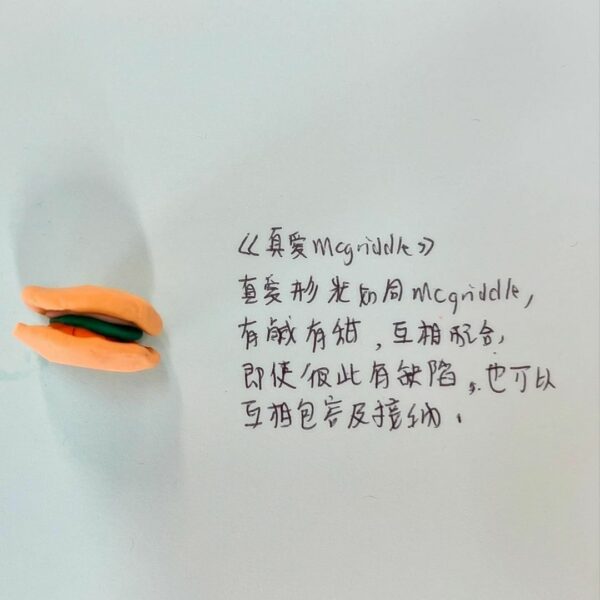 《真爱Mcgriddle》
真爱形光如同Mcgriddle,
有鹹有甜,互相配合,
即使彼此有缺陷,也可以
互相包容及接纳.